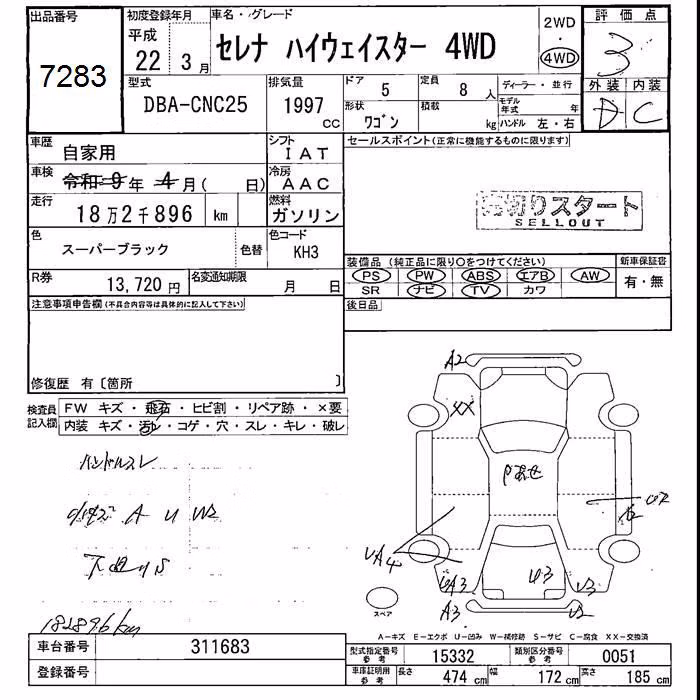 出品番号
7283
初度登録年月
平成
22 3月
車名・グレード
セレナ ハイウェイスター 4WD
2WD
・
4WD
評価点
3
外装 内装
D C
型式
DBA-CNC25
排気量
1997
CC
ドア
5
定員
8 人
形状
ワゴン
積載
kg
ディーラー・並行
モデル年式 年
ハンドル 左・右
車歴
自家用
シフト
IAT
車検
令和 9 年 4 月( 日)
冷房
AAC
走行
18万2千896 km
燃料
ガソリン
色
スーパーブラック
色替
色コード
KH3
R券
13,720 円
名変通知期限
月 日
注意事項申告欄(不具合内容等は具体的に記入して下さい)
修復歴 有〔箇所 〕
セールスポイント(正常に機能するものに限ります)
売切りスタート
SELLOUT
装備品(純正品に限り○をつけてください)
PS PW ABS エアB AW
SR ナビ TV カワ
新車保証書
有・無
後日品
検査員
記入欄
FW キズ・飛石・ヒビ割・リペア跡・×要
内装 キズ・汚レ・コゲ・穴・スレ・キレ・破レ
ハンドルスレ
A U W2
下廻りS
182896km
A2
XX
UA4
UA3
A3
U3
U2
スペア
A-キズ E-エクボ U-凹み W-補修跡 S-サビ C-腐食 XX-交換済
車台番号
311683
登録番号
型式指定番号
参考
15332
類別区分番号
参考
0051
車庫証明用
参考
長さ
474 cm
幅
172 cm
高さ
185 cm